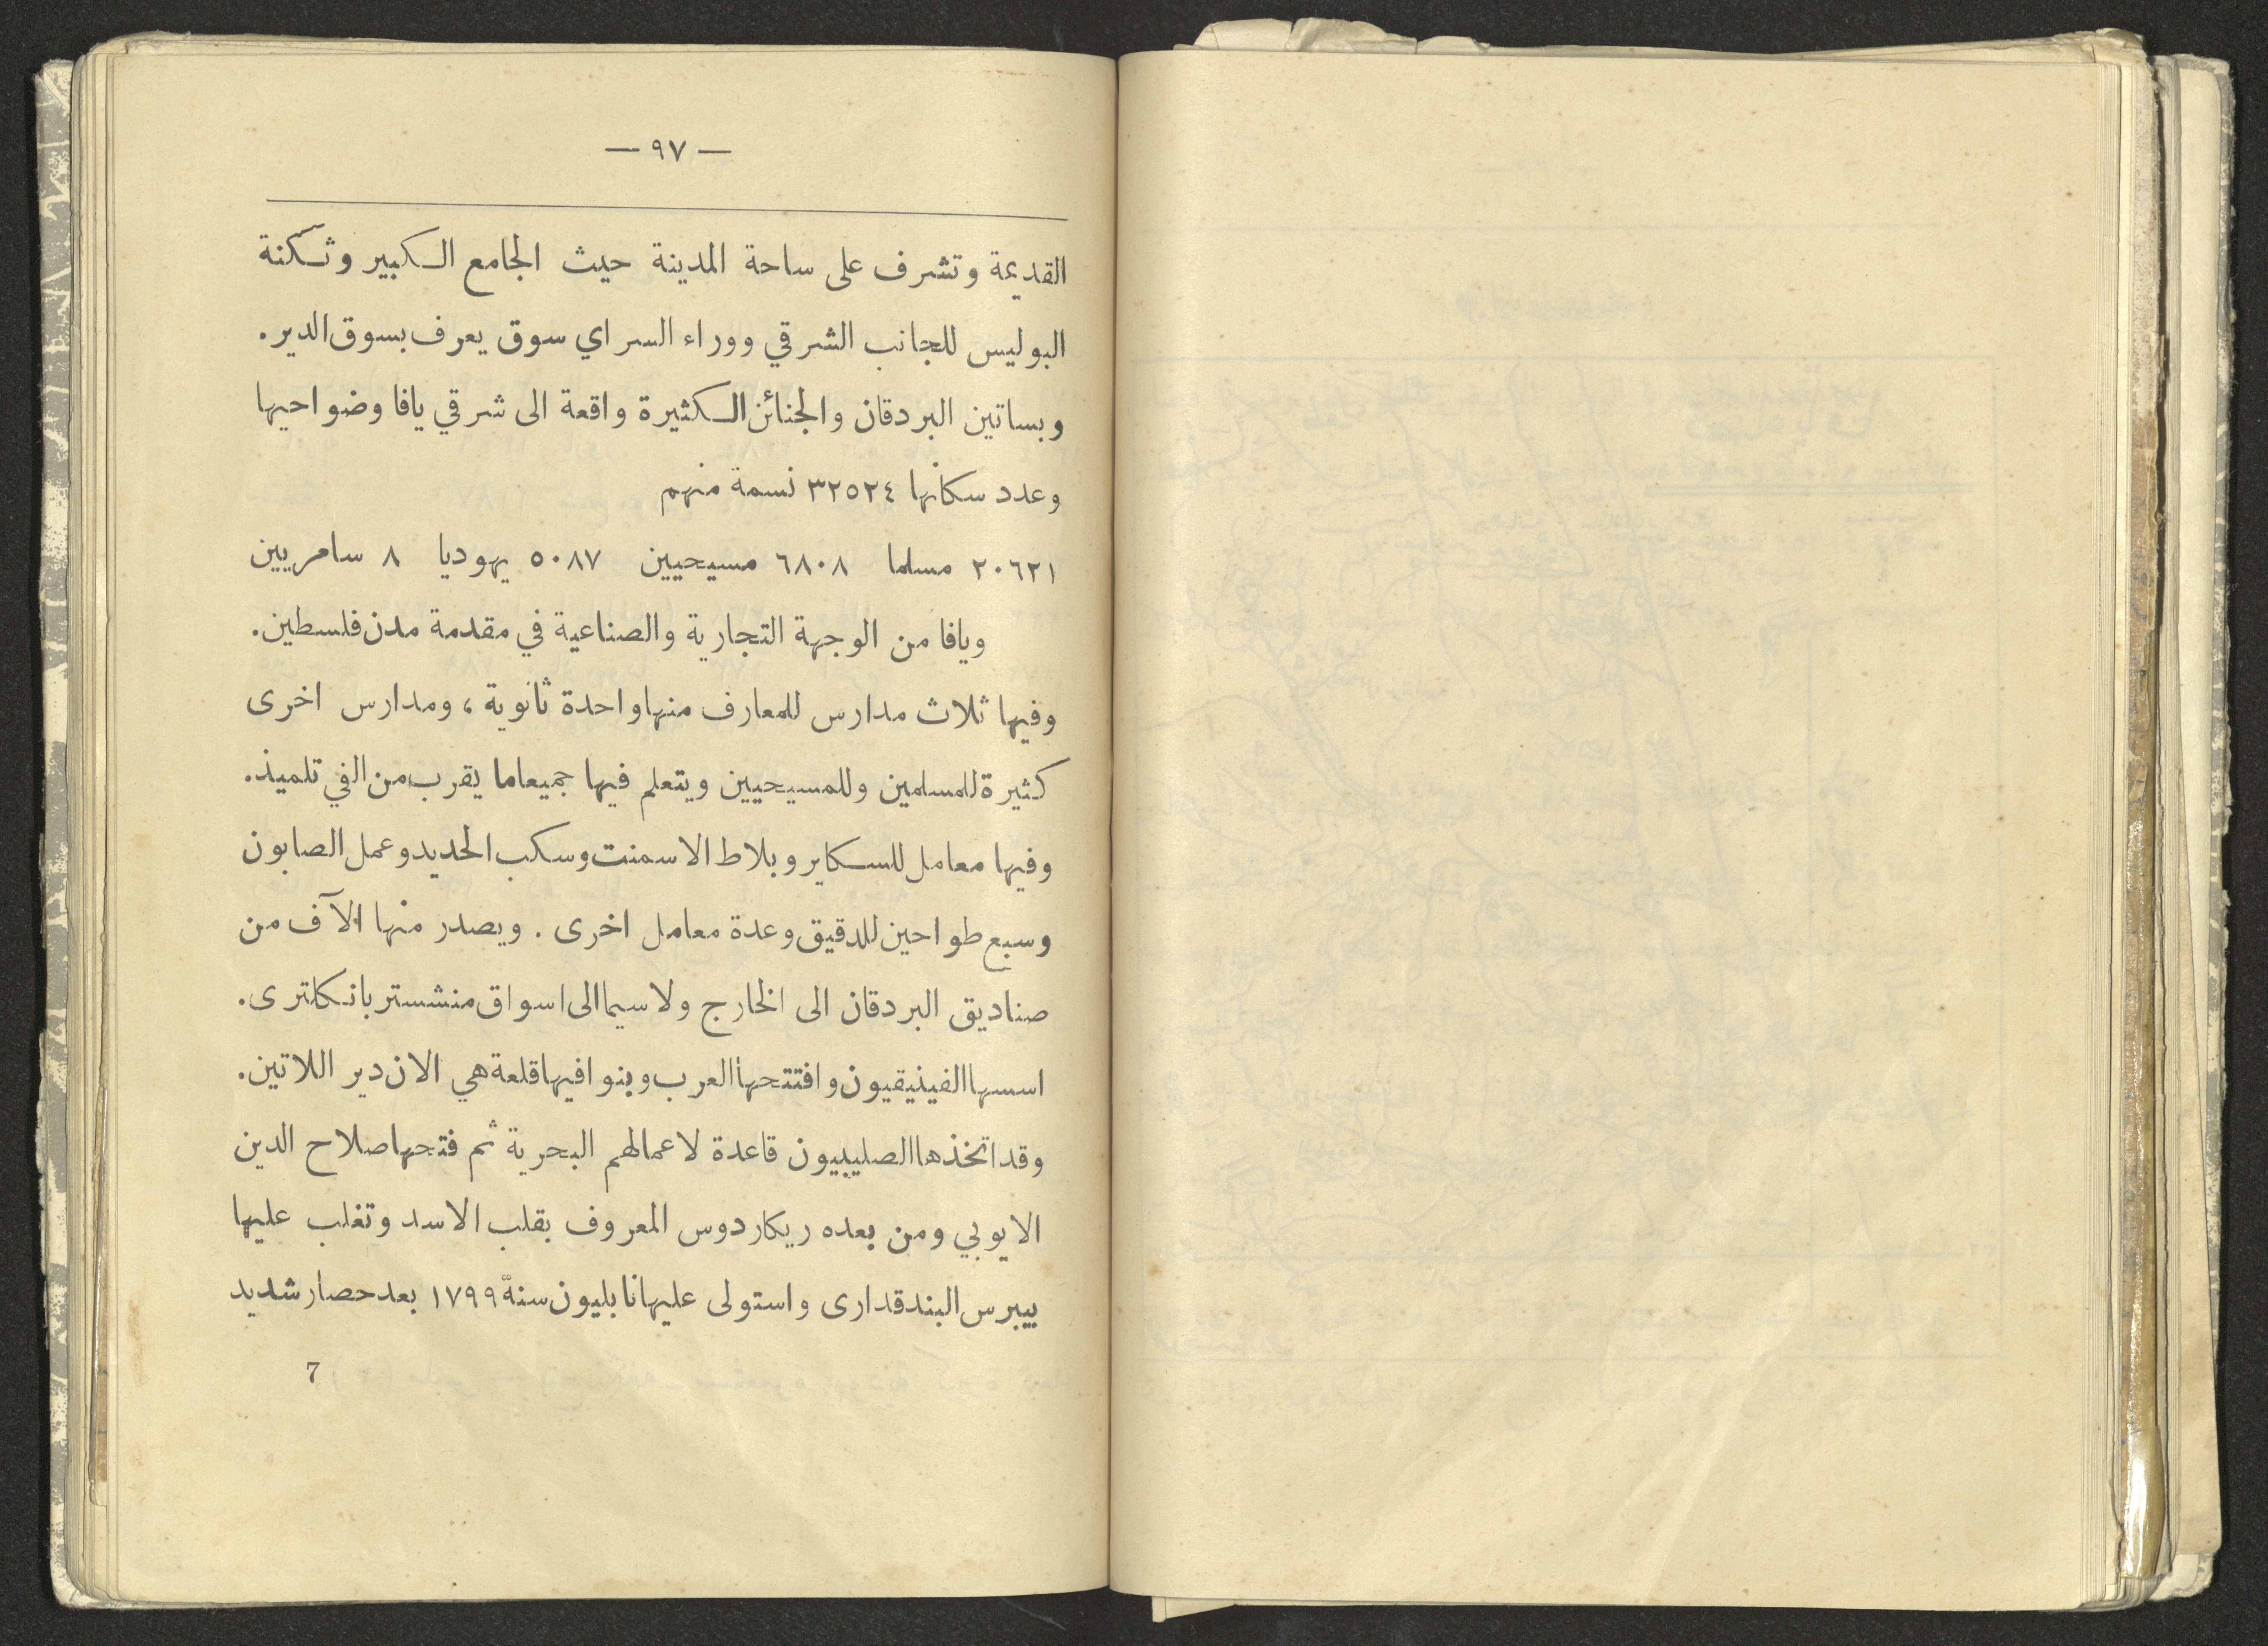 — ٩٧ —
القديمة وتشرف على ساحة المدينة حيث الجامع الكبير وثكنة
البوليس للجانب الشرقي ووراء السراي سوق يعرف بسوق الدير.
وبساتين البردقان والجنائن الكثيرة واقعة الى شرقي يافا وضواحيها
وعدد سكانها ٣٢٥٢٤ نسمة منهم
٢٠٦٢١ مسلما ٦٨٠٨ مسيحيين ٥٠٨٧ يهوديا ٨ سامريين
ويافا من الوجهة التجارية والصناعية في مقدمة مدن فلسطين.
وفيها ثلاث مدارس للمعارف منها واحدة ثانوية ، ومدارس اخرى
كثيرة للمسلمين وللمسيحيين ويتعلم فيها جميعا ما يقرب من الفي تلميذ.
وفيها معامل للسكاير وبلاط الاسمنت وسكب الحديد وعمل الصابون
وسبع طواحين للدقيق وعدة معامل اخرى . ويصدر منها الآف من
صناديق البردقان الى الخارج ولا سيما الى اسواق منشستر بانكاترى.
اسسها الفينيقيون وافتتحها العرب وبنوا فيها قلعة هي الان دير اللاتين.
وقد اتخذها الصليبيون قاعدة لاعمالهم البحرية ثم فتحها صلاح الدين
الايوبي ومن بعده ريكاردوس المعروف بقلب الاسد وتغلب عليها
بيبرس البندقدارى واستولى عليها نابليون سنة ١٧٩٩ بعد حصار شديد
7